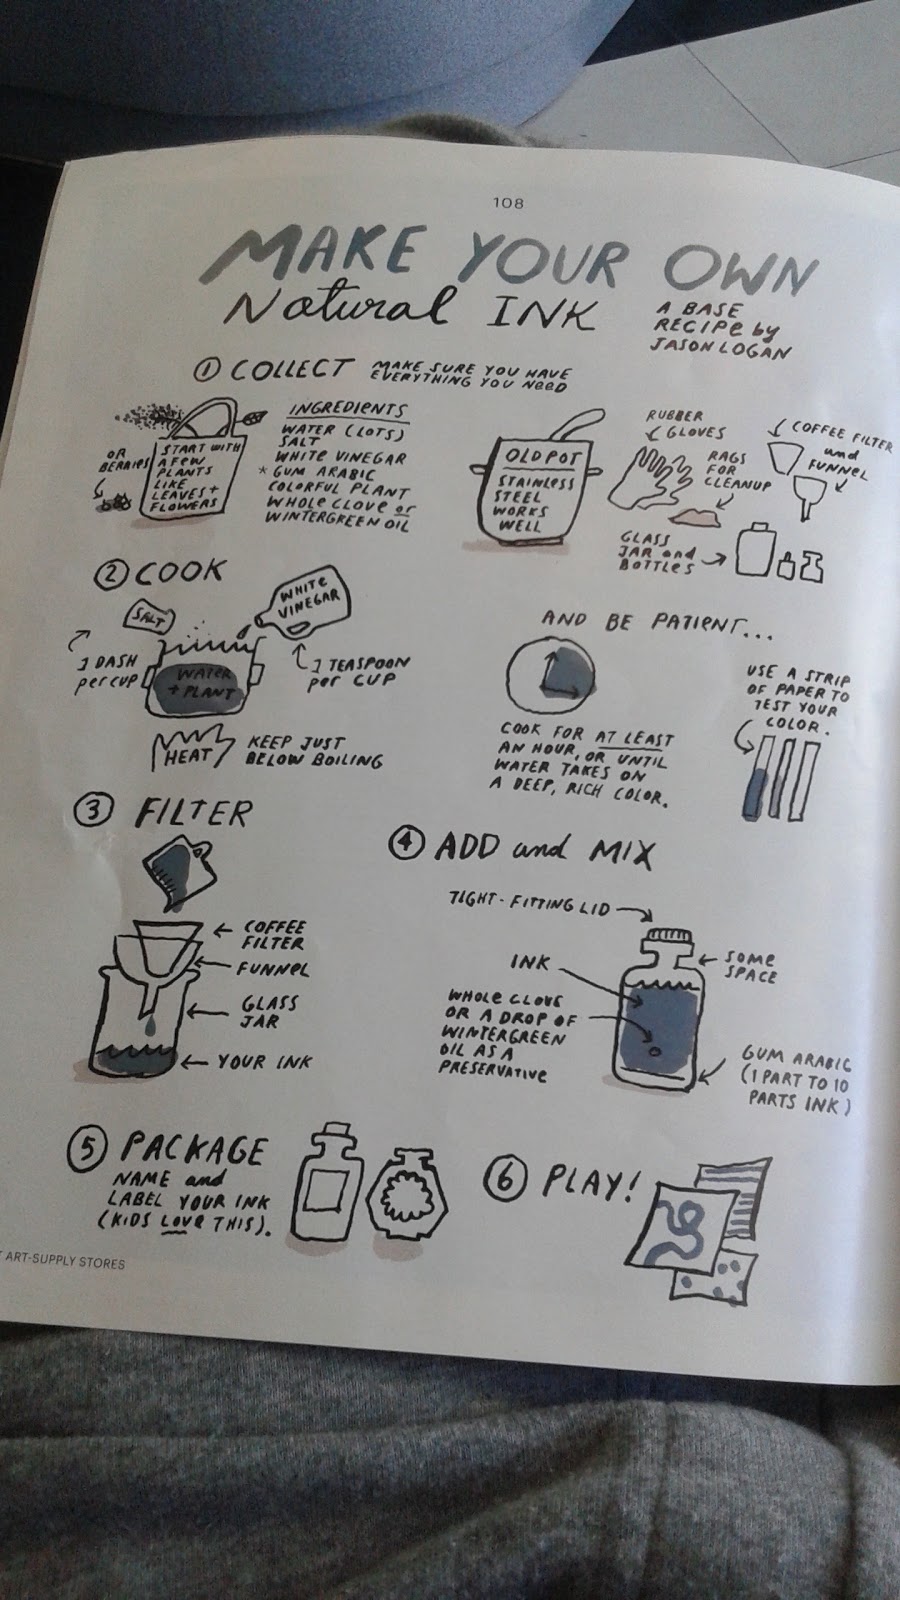 108
MAKE YOUR OWN
Natural INK
A BASE
RECIPE by
JASON LOGAN
① COLLECT
MAKE SURE YOU HAVE
EVERYTHING YOU NEED
OR
BERRIES
START WITH
A FEW
PLANTS
LIKE
LEAVES +
FLOWERS
INGREDIENTS
WATER (LOTS)
SALT
WHITE VINEGAR
* GUM ARABIC
COLORFUL PLANT
WHOLE CLOVE or
WINTERGREEN OIL
OLD POT
STAINLESS
STEEL
WORKS
WELL
RUBBER
GLOVES
RAGS
FOR
CLEANUP
COFFEE FILTER
and
FUNNEL
GLASS
JAR and
BOTTLES
② COOK
SALT
WHITE
VINEGAR
1 DASH
per CUP
WATER
+ PLANT
1 TEASPOON
per CUP
HEAT
KEEP JUST
BELOW BOILING
AND BE PATIENT...
COOK FOR AT LEAST
AN HOUR, OR UNTIL
WATER TAKES ON
A DEEP, RICH COLOR.
USE A STRIP
OF PAPER TO
TEST YOUR
COLOR.
③ FILTER
COFFEE
FILTER
FUNNEL
GLASS
JAR
YOUR INK
④ ADD and MIX
TIGHT-FITTING LID
INK
SOME
SPACE
WHOLE CLOVE
OR A DROP OF
WINTERGREEN
OIL AS A
PRESERVATIVE
GUM ARABIC
(1 PART TO 10
PARTS INK)
⑤ PACKAGE
NAME and
LABEL YOUR INK
(KIDS LOVE THIS).
⑥ PLAY!
ART-SUPPLY STORES